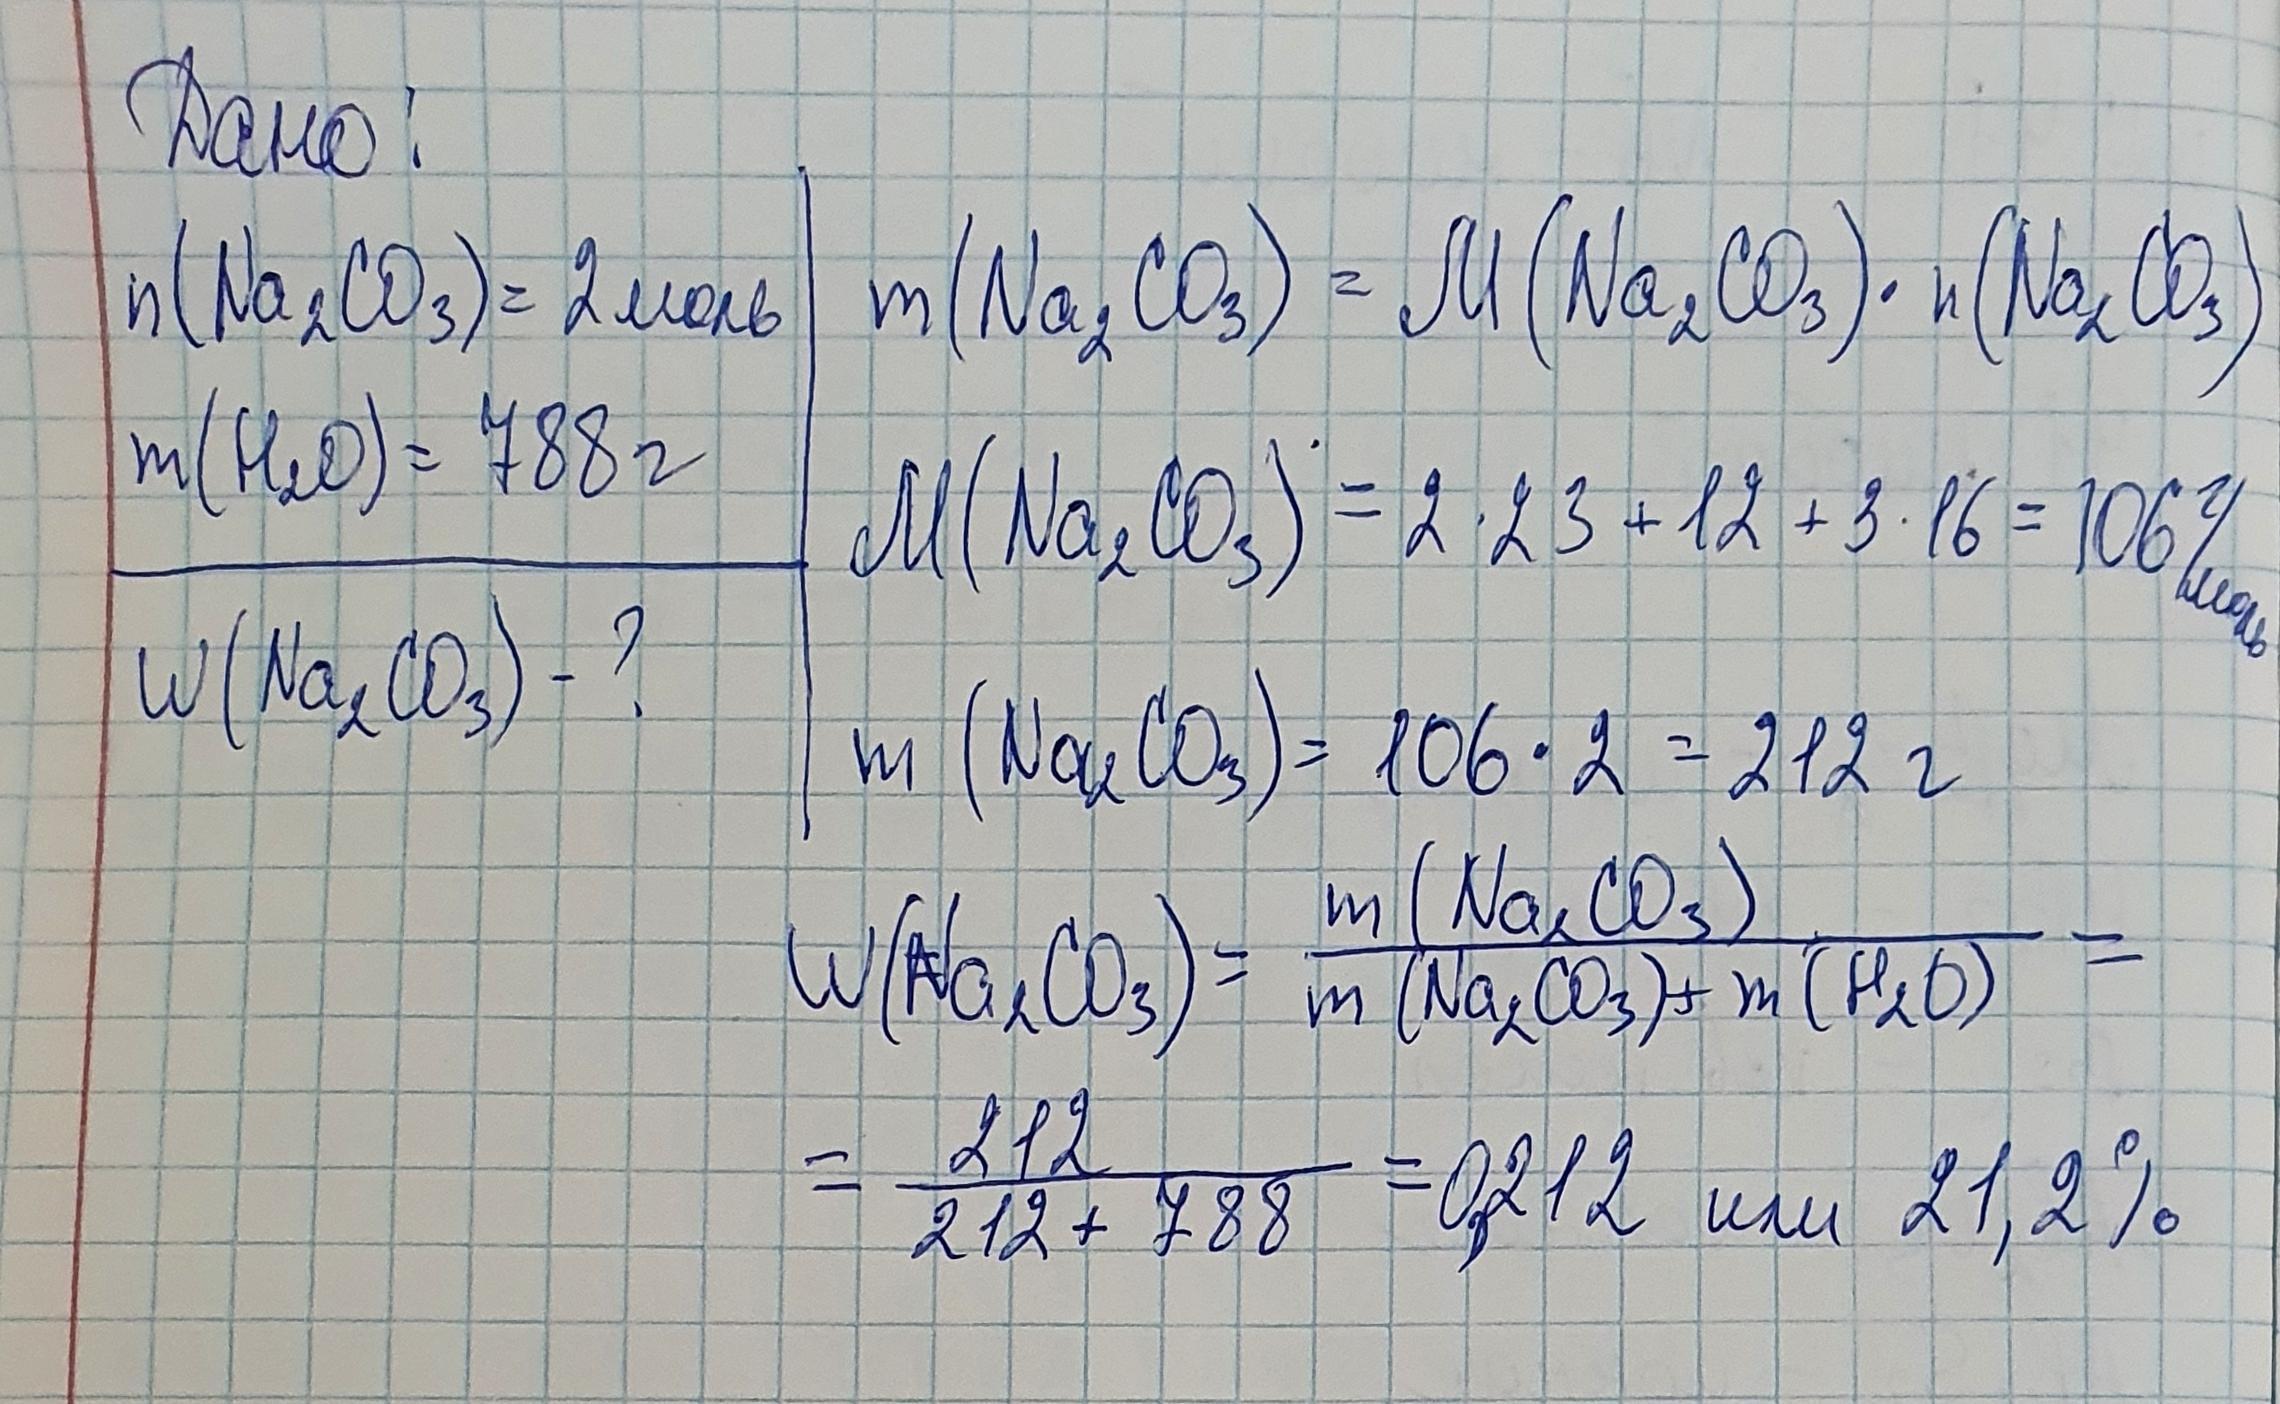 Дано:
n(Na₂CO₃) = 2 моль
m(H₂O) = 788 г
W(Na₂CO₃) - ?
m(Na₂CO₃) = M(Na₂CO₃) · n(Na₂CO₃)
M(Na₂CO₃) = 2 · 23 + 12 + 3 · 16 = 106 г/моль
m (Na₂CO₃) = 106 · 2 = 212 г
m (Na₂CO₃)
W(Na₂CO₃) = =
m (Na₂CO₃) + m (H₂O)
212
= = 0,212 или 21,2%
212 + 788